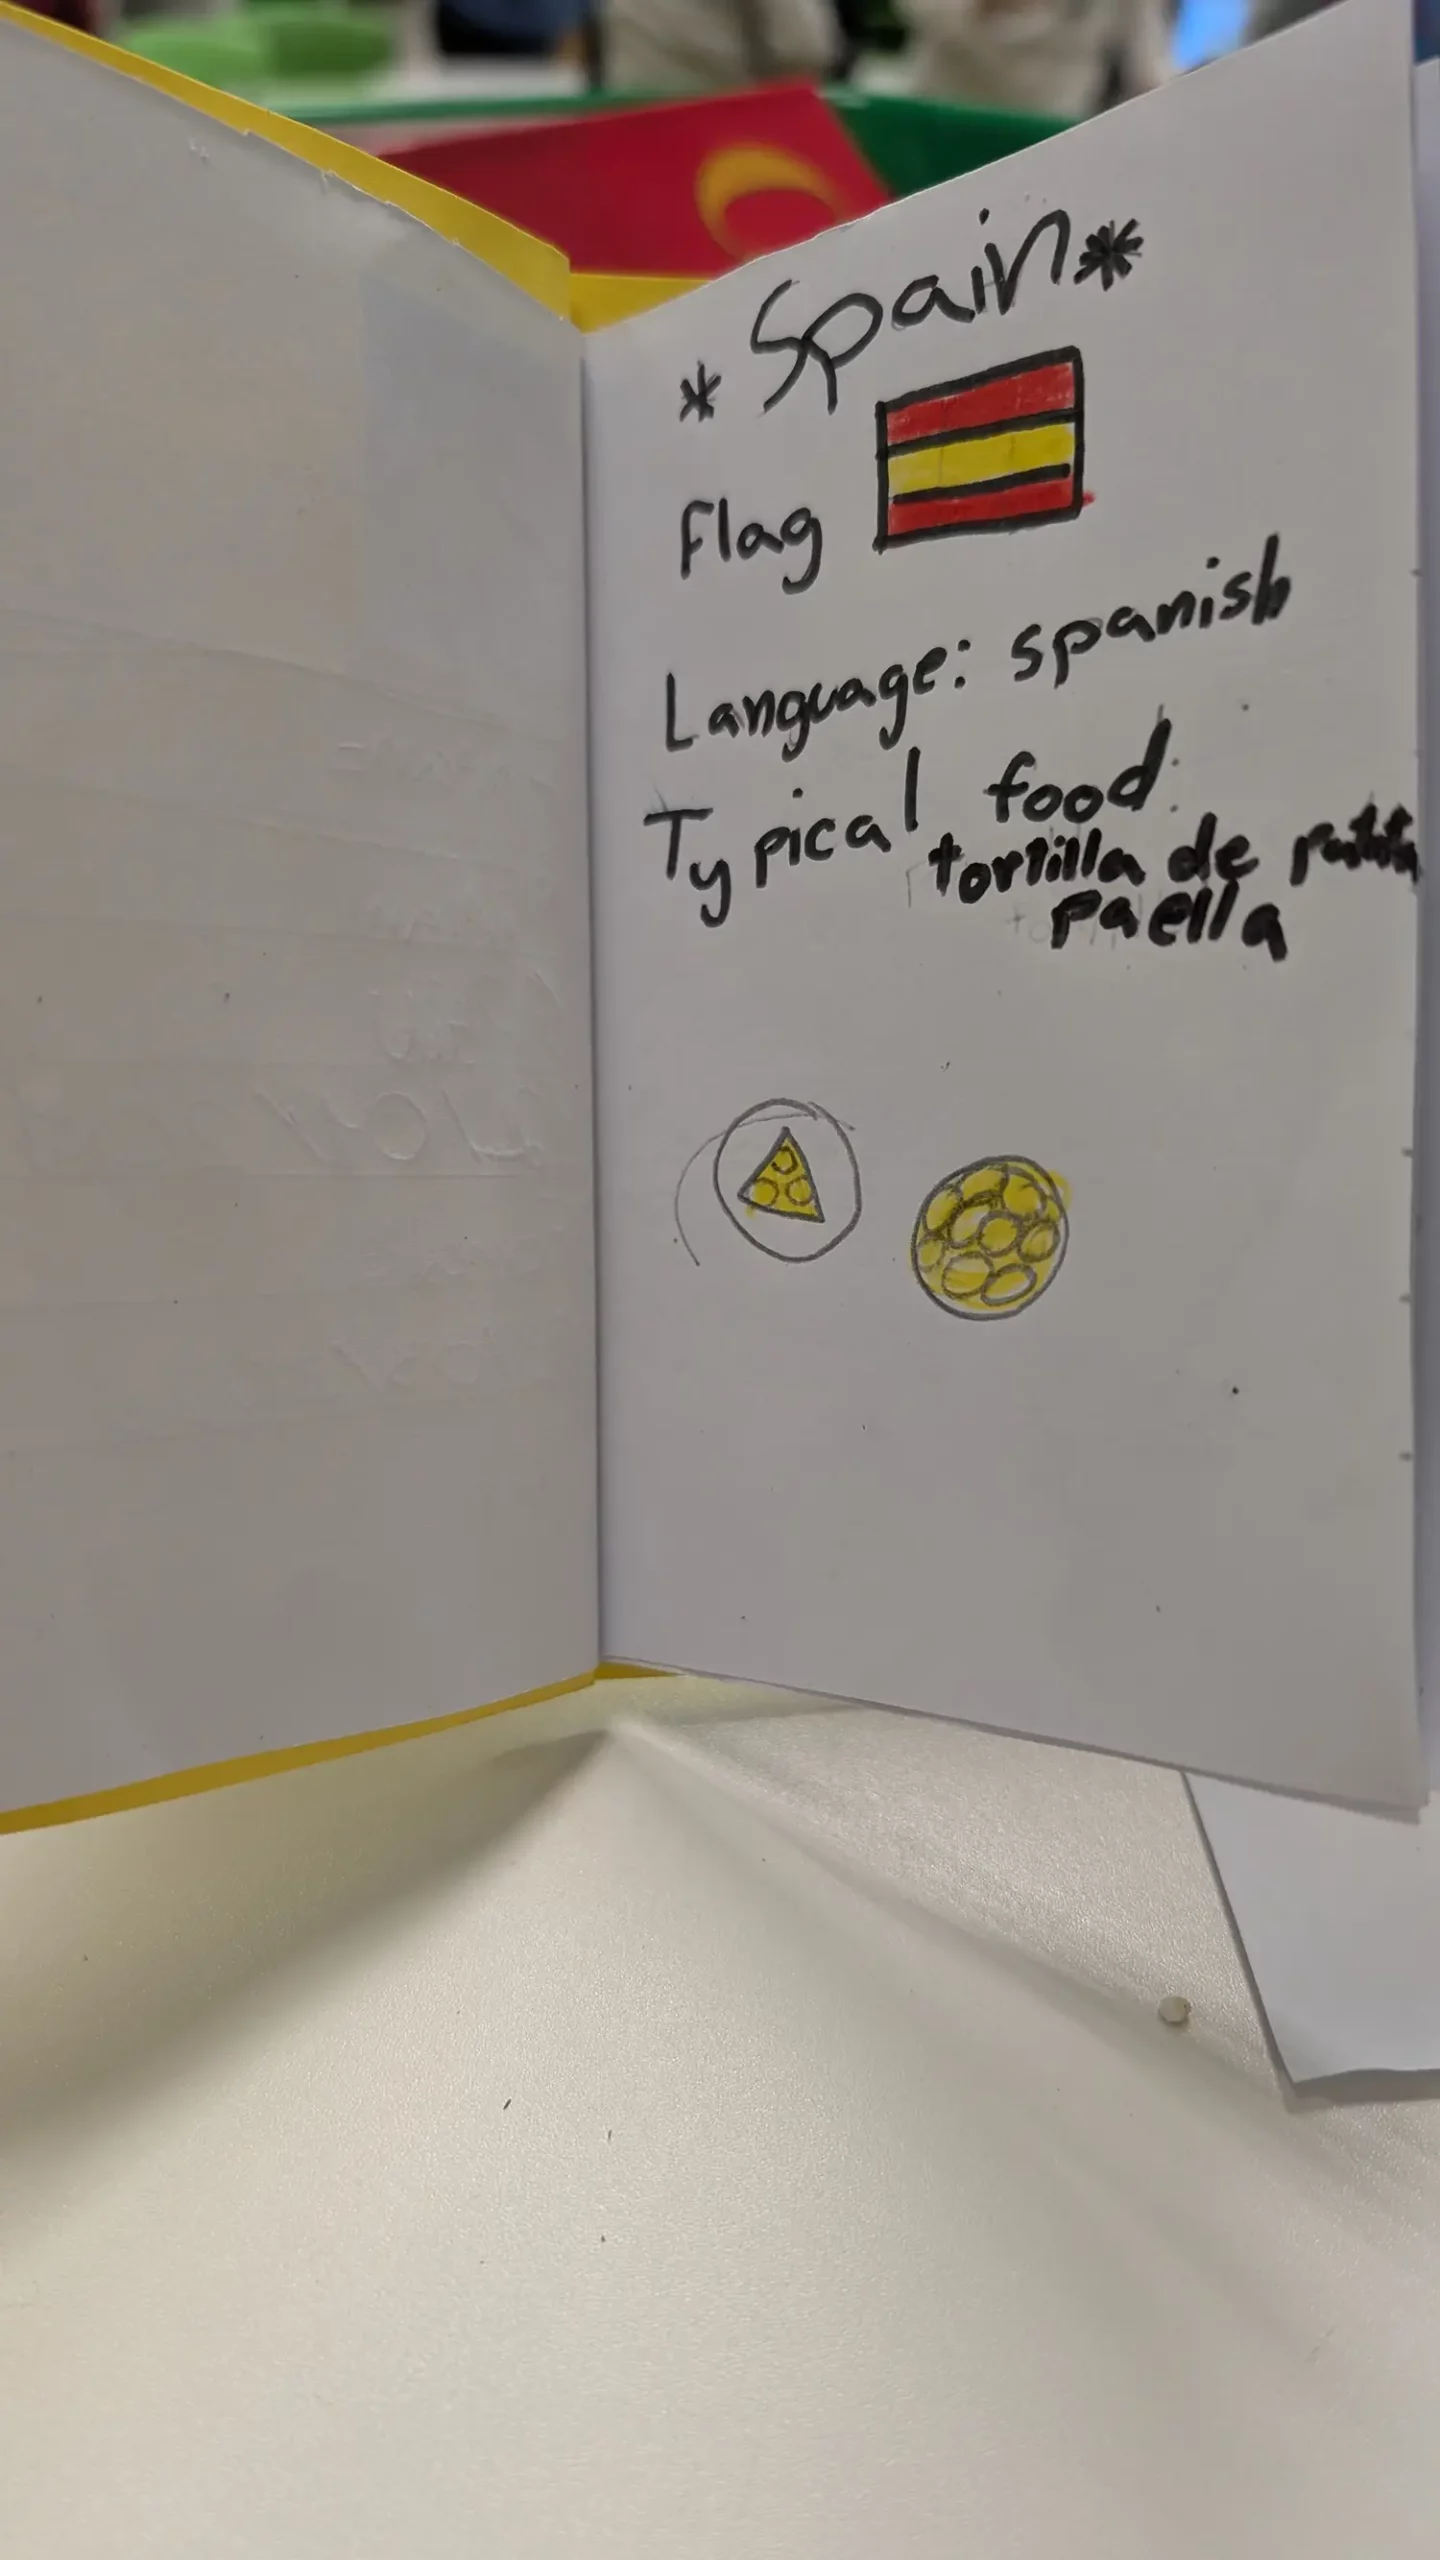 * Spain *
Flag
Language: spanish
Typical food:
tortilla de patata
paella